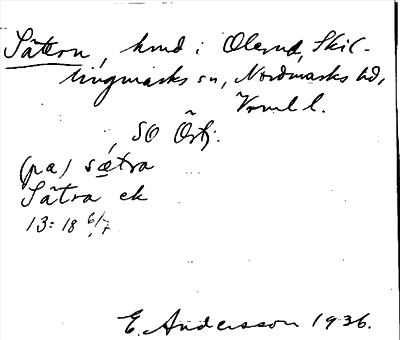 Sätern, hmd i Olserud, Skil-
lingmarks sn, Nordmarks hd,
Vrml l.
SO Örtj.
(pa) sætra
Sätra ek
13: 18 6/7
E. Andersson 1936.